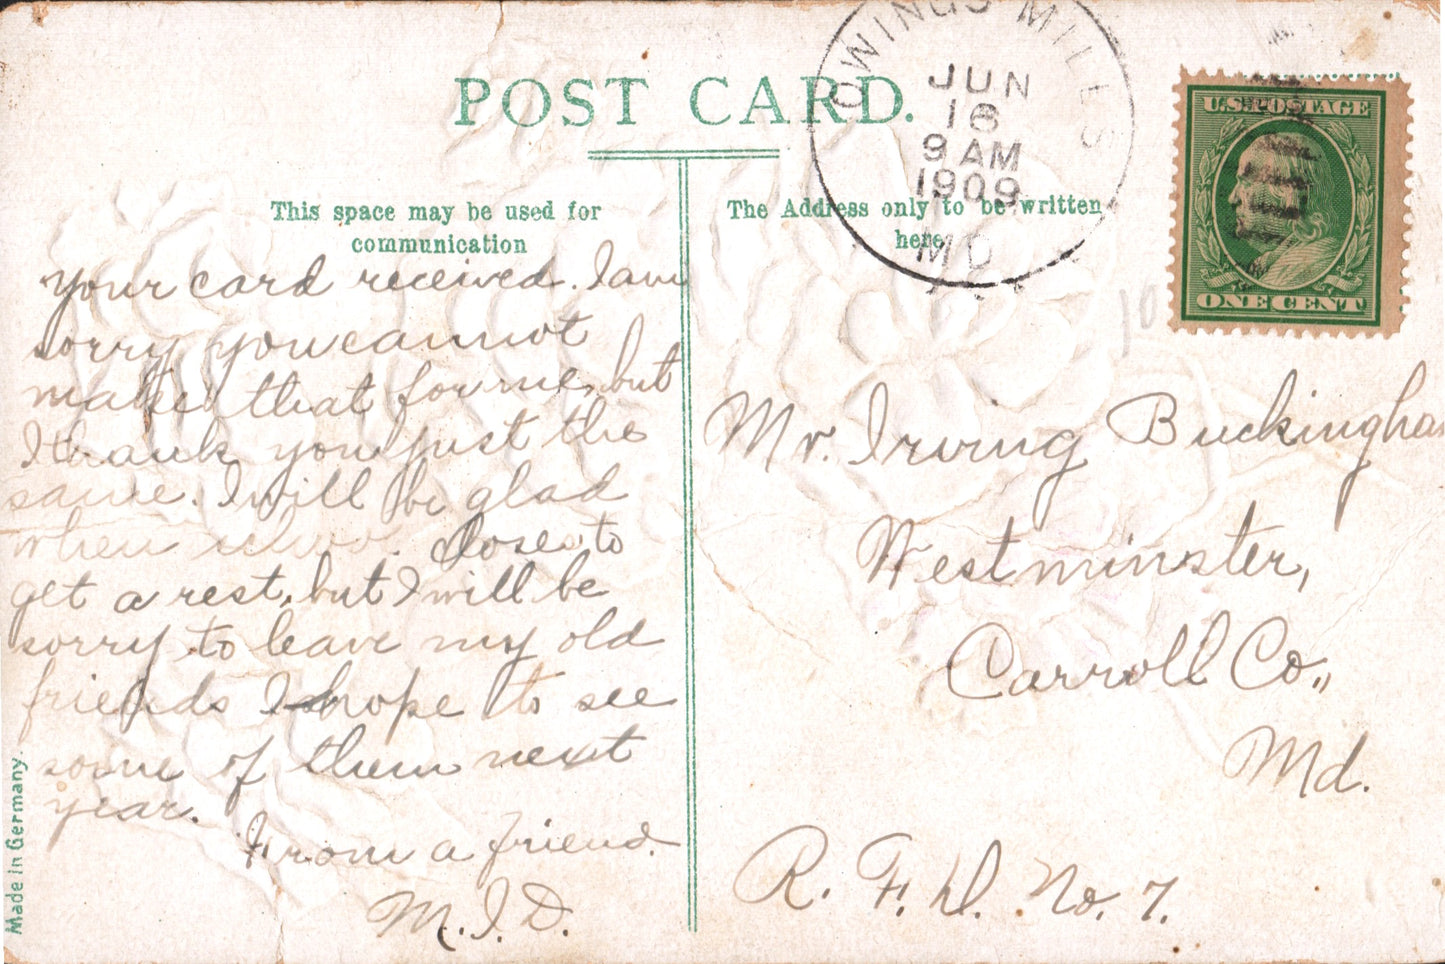 POST CARD.
OWINGS MILLS
JUN
16
9 AM
1909
MD
U.S. POSTAGE
ONE CENT
This space may be used for
communication
The Address only to be written
here
Your card received. I am
sorry you cannot
make that for me, but
I thank you just the
same. I will be glad
when closes to
get a rest, but I will be
sorry to leave my old
friends I hope to see
some of them next
year.
From a friend.
M. I. D.
Mr. Irving Buckingham
Westminster,
Carroll Co.,
Md.
R. F. D. No. 7.
Made in Germany.